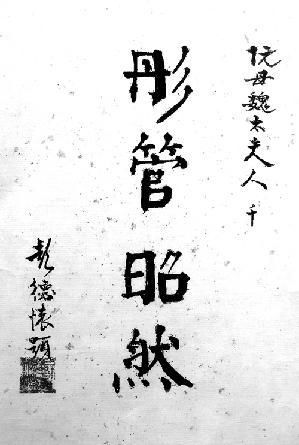 阮母魏太夫人千
彤管昭然
彭德怀題